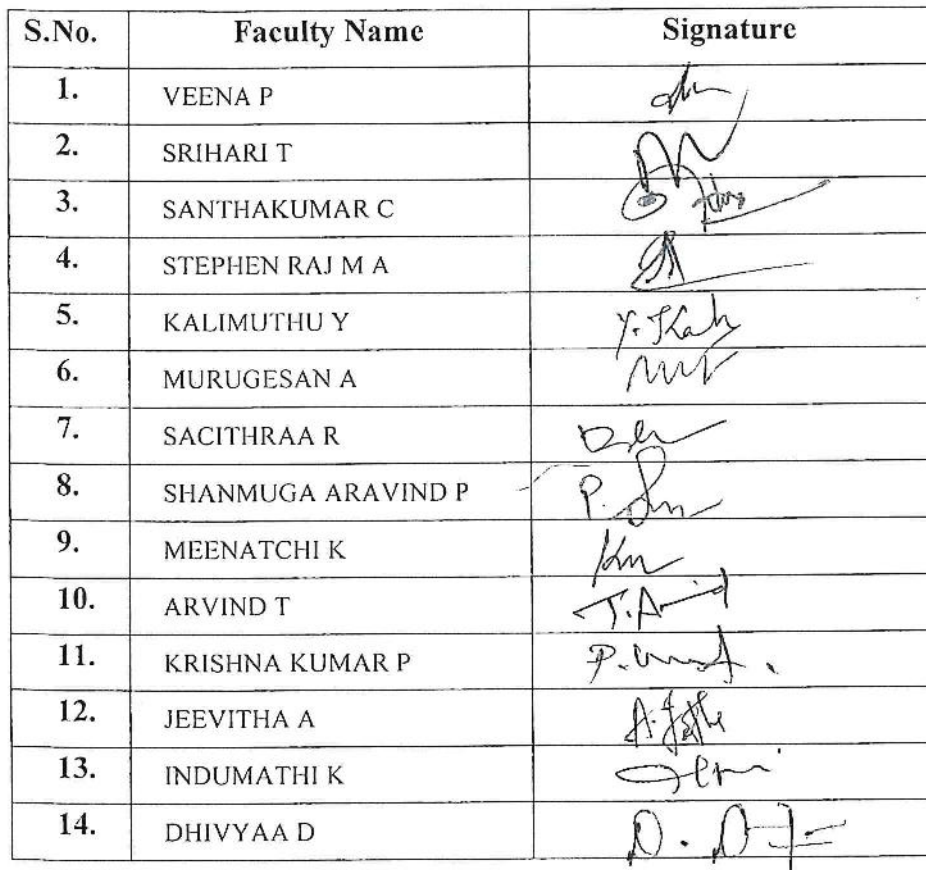 S.No. Faculty Name Signature
1. VEENA P
2. SRIHARI T
3. SANTHAKUMAR C
4. STEPHEN RAJ M A
5. KALIMUTHU Y
6. MURUGESAN A
7. SACITHRAA R
8. SHANMUGA ARAVIND P
9. MEENATCHI K
10. ARVIND T
11. KRISHNA KUMAR P
12. JEEVITHA A
13. INDUMATHI K
14. DHIVYAA D